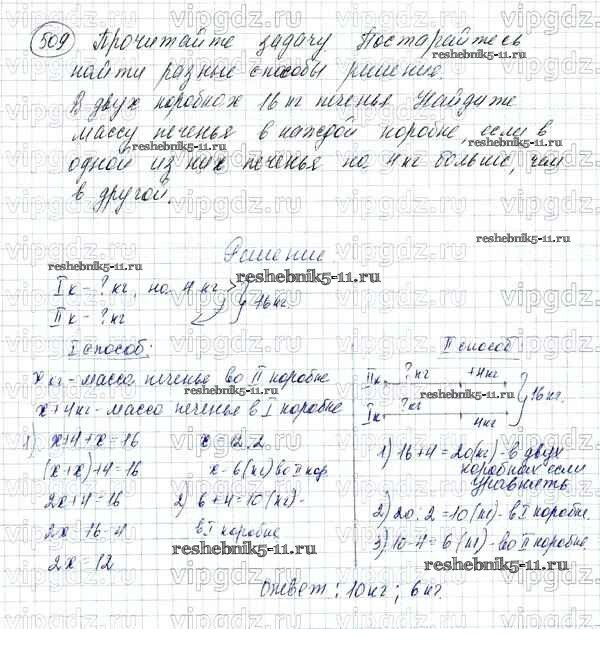 509 Прочитайте задачу Постарайтесь
найти разные способы решение.
В двух коробках 16 кг печенья. Найдите
массу печенья в каждой коробке, если в
одной из них печенья на 4 кг больше, чем
в другой.
Решение
I к - ? кг, на 4 кг >
II к - ? кг
16 кг.
I способ:
x кг - масса печенье во II коробке
x+4 кг - масса печенье в I коробке
1) x+4+x=16
(x+x)+4=16
2x+4=16
2x=16-4
2x=12
x=12:2
x=6 (кг) во II кор.
2) 6+4=10 (кг) -
в I коробке
II способ
II к. ? кг +4 кг
I к. ? кг 4 кг
16 кг.
1) 16+4=20 (кг) - в двух
коробках если
уравнять
2) 20:2=10 (кг) - в I коробке.
3) 10-4=6 (кг) - во II коробке.
Ответ: 10 кг; 6 кг.
reshebnik5-11.ru
reshebnik5-11.ru
reshebnik5-11.ru
reshebnik5-11.ru
reshebnik5-11.ru
reshebnik5-11.ru
reshebnik5-11.ru
reshebnik5-11.ru
vipgdz.ru